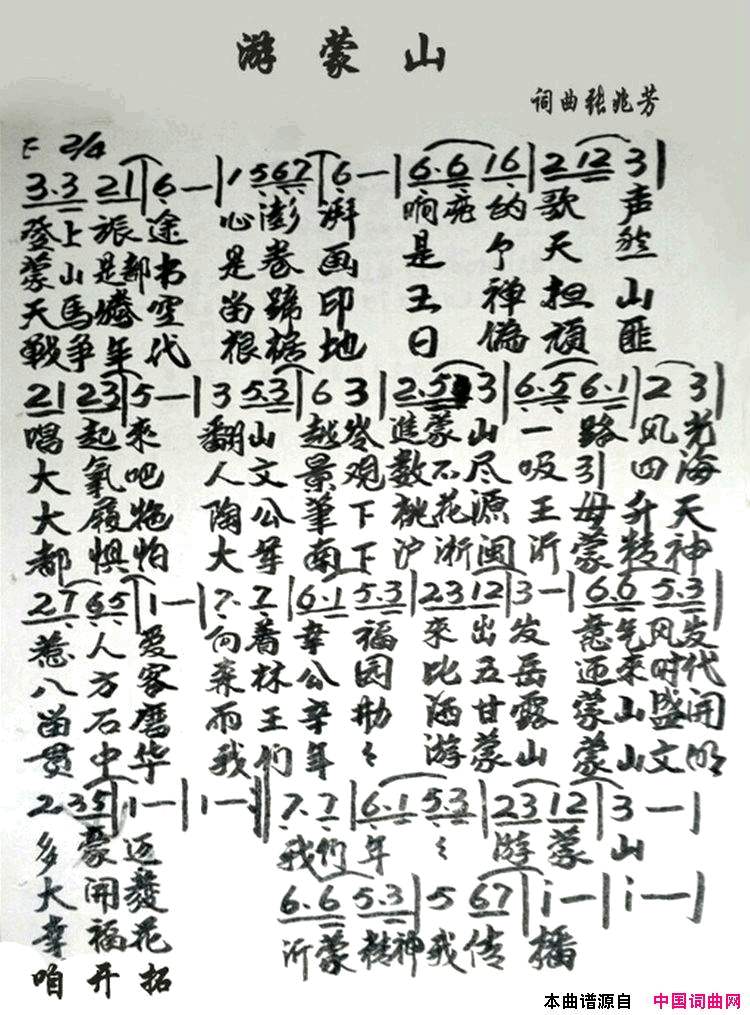 游蒙山
词曲张兆芳
F 2/4
3·3 21 | 6 — | 1 567 | 6 — | 6·6 16 | 2 12 3 |
登上旅途 心澎湃 响亮的歌声
蒙山是都书 是卷画 是个天然
天馬腾空 留蹄印 王禅担山
戰争年代 根据地 日偽頑匪
21 23 | 5 — | 3 53 | 6 3 | 2·5 3 | 6·5 6·1 | 2 3 |
唱起來 翻山越岑進蒙山 一路风光
大氧吧 人文景观数不尽 吸引四海
大履袍 陶公筆下桃花源 王母升天
都惧怕 大華南下沪浙闽 沂蒙精神
27 65 | 1 — | 7· 7 | 6·1 5·3 | 23 12 | 3 — | 6·6 5·3 |
惹人爱 向着幸福來出发 意气风发
八方客 森林公园比五岳 迎來时代
留石磨 雨王辛勤洒甘露 蒙山盛开
贯中华 我们年々游蒙山 蒙山文明
2 35 | 1 — | 1 — || 7· 7 | 6·1 5·3 | 23 12 | 3 — |
多豪迈 我们年々游蒙山
大開發
6·6 5·3 | 5 67 | i — | i — |
幸福花 沂蒙精神我传播
咱开拓
本曲谱源自 中国词曲网